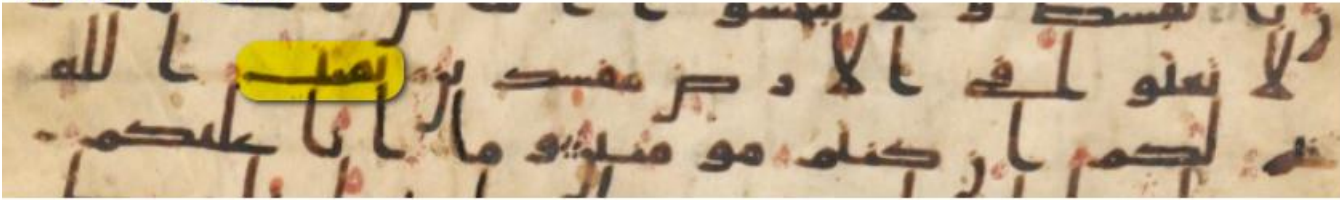 لا تعثوا في الارض مفسدين بقيت الله
خير لكم ان كنتم مومنين وما انا عليكم